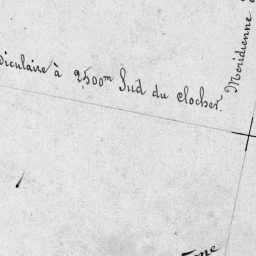 diculaire à 2500m Sud du clocher.
Méridienne